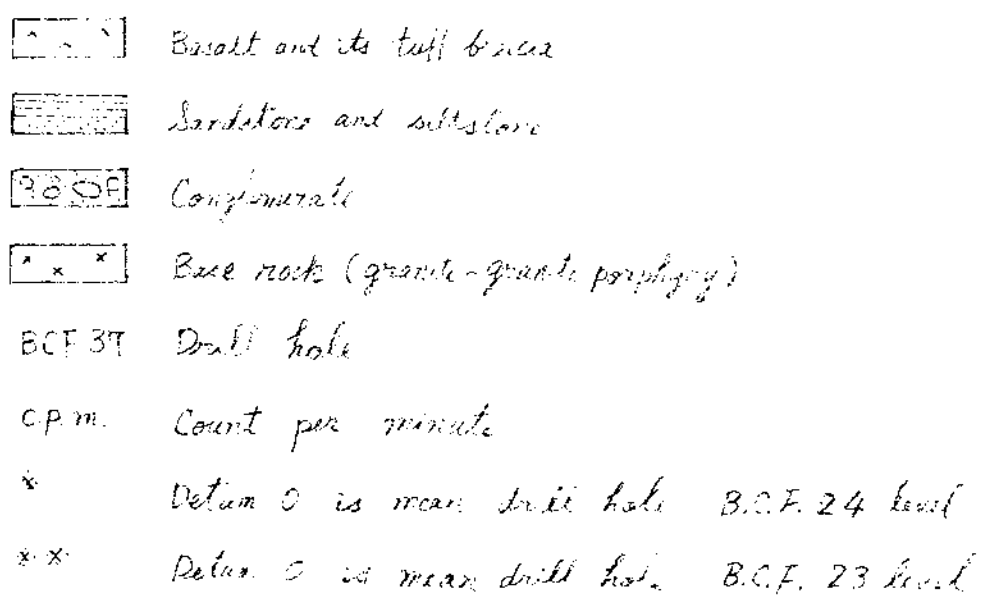 Basalt and its tuff breccia
Sandstone and siltstone
Conglomerate
Base rock (granite-granite porphyry)
BCF 37 Drill hole
C.P.m. Count per minute
* Detum 0 is mean drill hole B.C.F. 24 level
** Detum 0 is mean drill hole B.C.F. 23 level